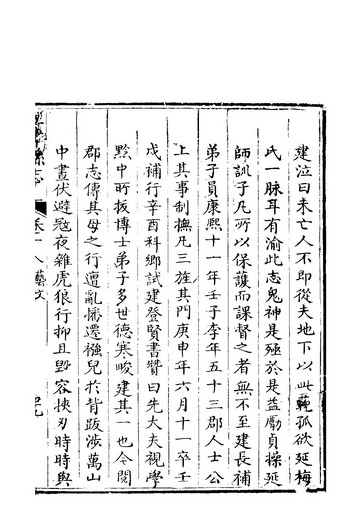 建泣曰未亡人不即從夫地下以此藐孤欲延梅
氏一脉耳有渝此志鬼神是殛於是益勵貞操延
師訓子凡所以保護而課督之者無不至建長補
弟子員康熙十一年壬子李年五十三郡人士公
上其事制撫凡三旌其門庚申年六月十一卒壬
戌補行辛酉科鄉試建登賢書贊曰先大夫視學
黔中所拔博士弟子多世德寒畯建其一也今閱
郡志傳其母之行遭亂播遷襁兒於背跋涉萬山
中晝伏避寇夜雜虎狼行抑且毀容挾刃時時與
志
卷十八藝文